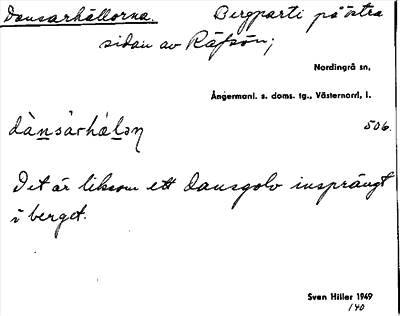 Dansarhällorna. Bergparti på östra
sidan av Räfsön;
Nordingrå sn,
Ångermanl. s. doms. tg., Västernorrl. l.
dànsarhälən 506.
Det är liksom ett dansgolv insprängt
i berget.
Sven Hiller 1949
140